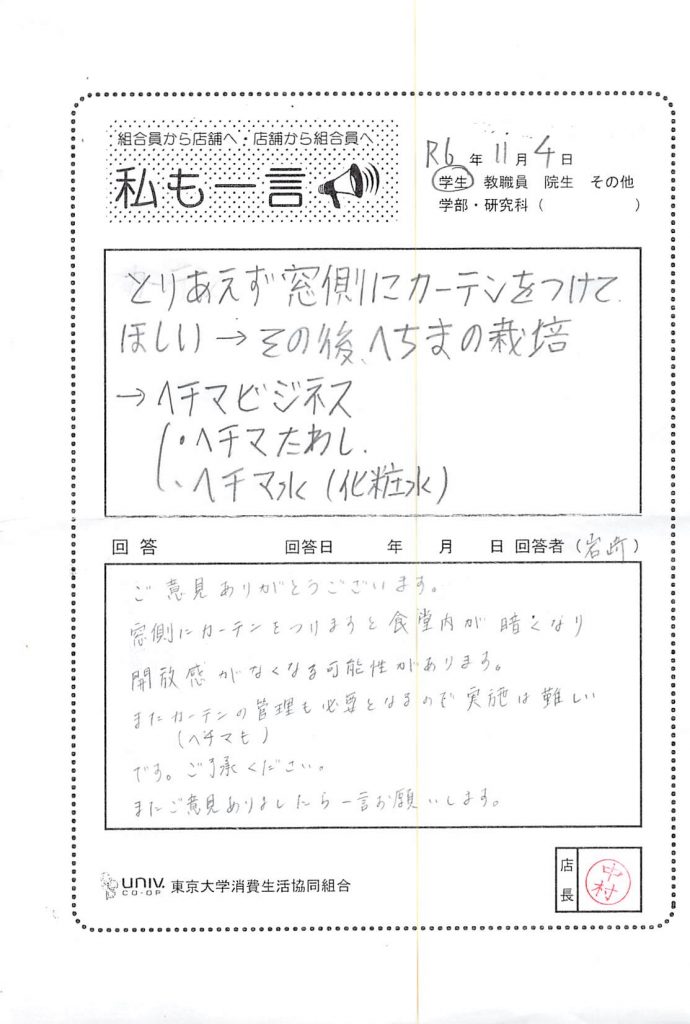 組合員から店舗へ・店舗から組合員へ
私も一言
R6年11月4日
学生 教職員 院生 その他
学部・研究科（ ）
とりあえず窓側にカーテンをつけて
ほしい→その後、へちまの栽培
→ヘチマビジネス
・ヘチマたわし
・ヘチマ水(化粧水)
回答 回答日 年 月 日 回答者（岩崎）
ご意見ありがとうございます。
窓側にカーテンをつけますと食堂内が暗くなり
開放感がなくなる可能性があります。
またカーテンの管理も必要となるので実施は難しい
(ヘチマも)
です。ご了承ください。
またご意見ありましたら一言お願いします。
UNIV. CO-OP 東京大学消費生活協同組合
店長
中村